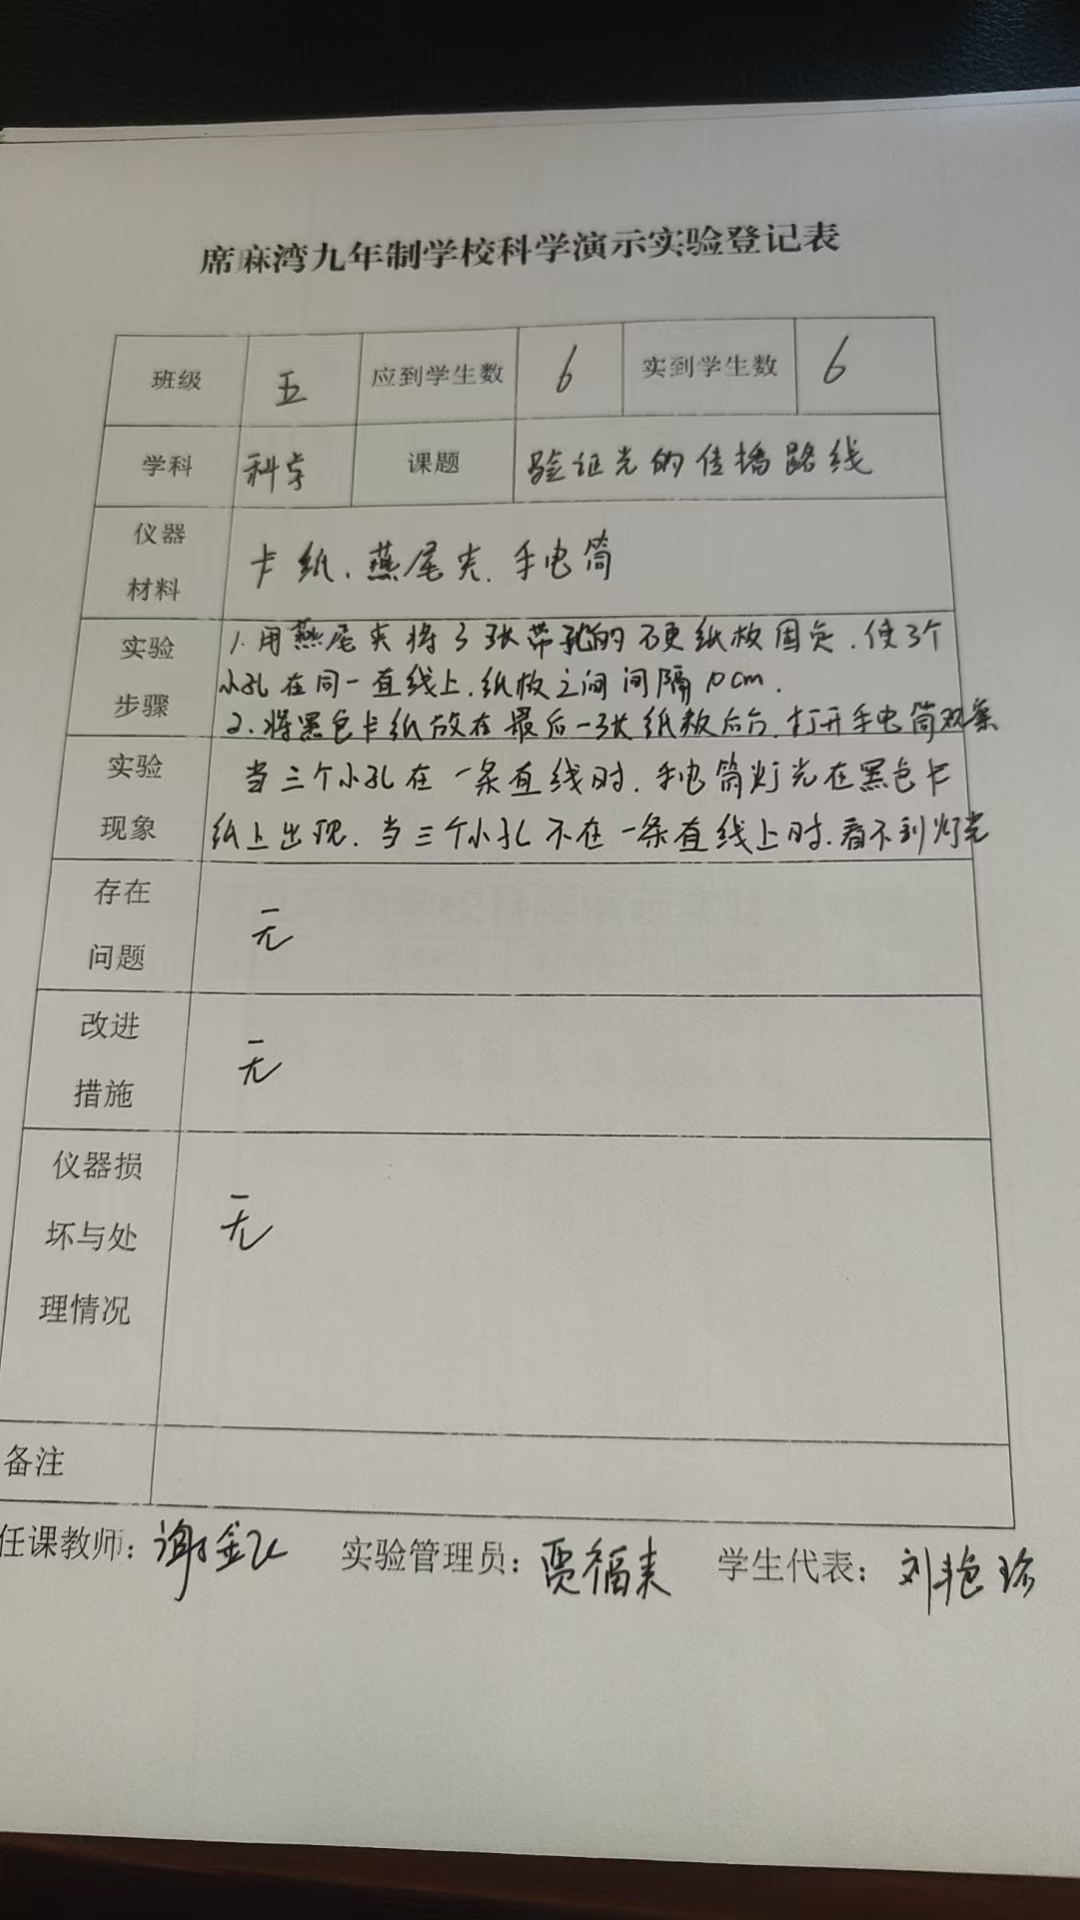 席麻湾九年制学校科学演示实验登记表
班级 五 应到学生数 6 实到学生数 6
学科 科学 课题 验证光的传播路线
仪器材料 卡纸、燕尾夹、手电筒
实验步骤 1.用燕尾夹将3张带孔的硬纸板固定，使3个
小孔在同一直线上，纸板之间间隔10cm.
2.将黑色卡纸放在最后一张纸板后方，打开手电筒观察
实验现象 当三个小孔在一条直线时，手电筒灯光在黑色卡
纸上出现，当三个小孔不在一条直线上时，看不到灯光
存在问题 无
改进措施 无
仪器损坏与处理情况 无
备注
任课教师：谢金飞 实验管理员：贾福来 学生代表：刘艳珍